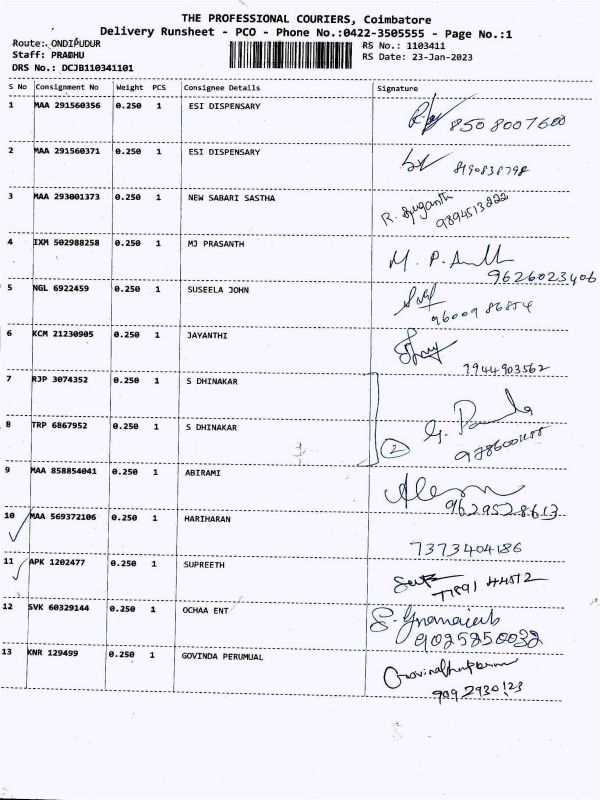 THE PROFESSIONAL COURIERS, Coimbatore
Delivery Runsheet - PCO - Phone No.:0422-3505555 - Page No.:1
Route: ONDIPUDUR
Staff: PRABHU
DRS No.: DCJB110341101
RS No.: 1103411
RS Date: 23-Jan-2023
S No Consignment No Weight PCS Consignee Details Signature
1 MAA 291560356 0.250 1 ESI DISPENSARY 8508007600
2 MAA 291560371 0.250 1 ESI DISPENSARY 8190838798
3 MAA 293001373 0.250 1 NEW SABARI SASTHA R. Suganth
9894513222
4 IXM 502988258 0.250 1 MJ PRASANTH
9626023406
5 NGL 6922459 0.250 1 SUSEELA JOHN
9600986854
6 KCM 21230905 0.250 1 JAYANTHI
7944903562
7 RJP 3074352 0.250 1 S DHINAKAR
8 TRP 6867952 0.250 1 S DHINAKAR 2
9 MAA 858854041 0.250 1 ABIRAMI
9629528613
10 MAA 569372106 0.250 1 HARIHARAN
7373404186
11 APK 1202477 0.250 1 SUPREETH
77891 44512
12 SVK 60329144 0.250 1 OCHAA ENT
9025850032
13 KNR 129499 0.250 1 GOVINDA PERUMUAL
9092930123